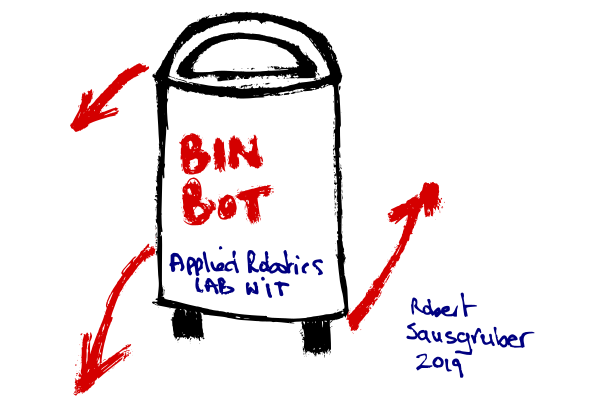 BIN
BOT
Applied Robotics
LAB WIT
Robert
Sausgruber
2019